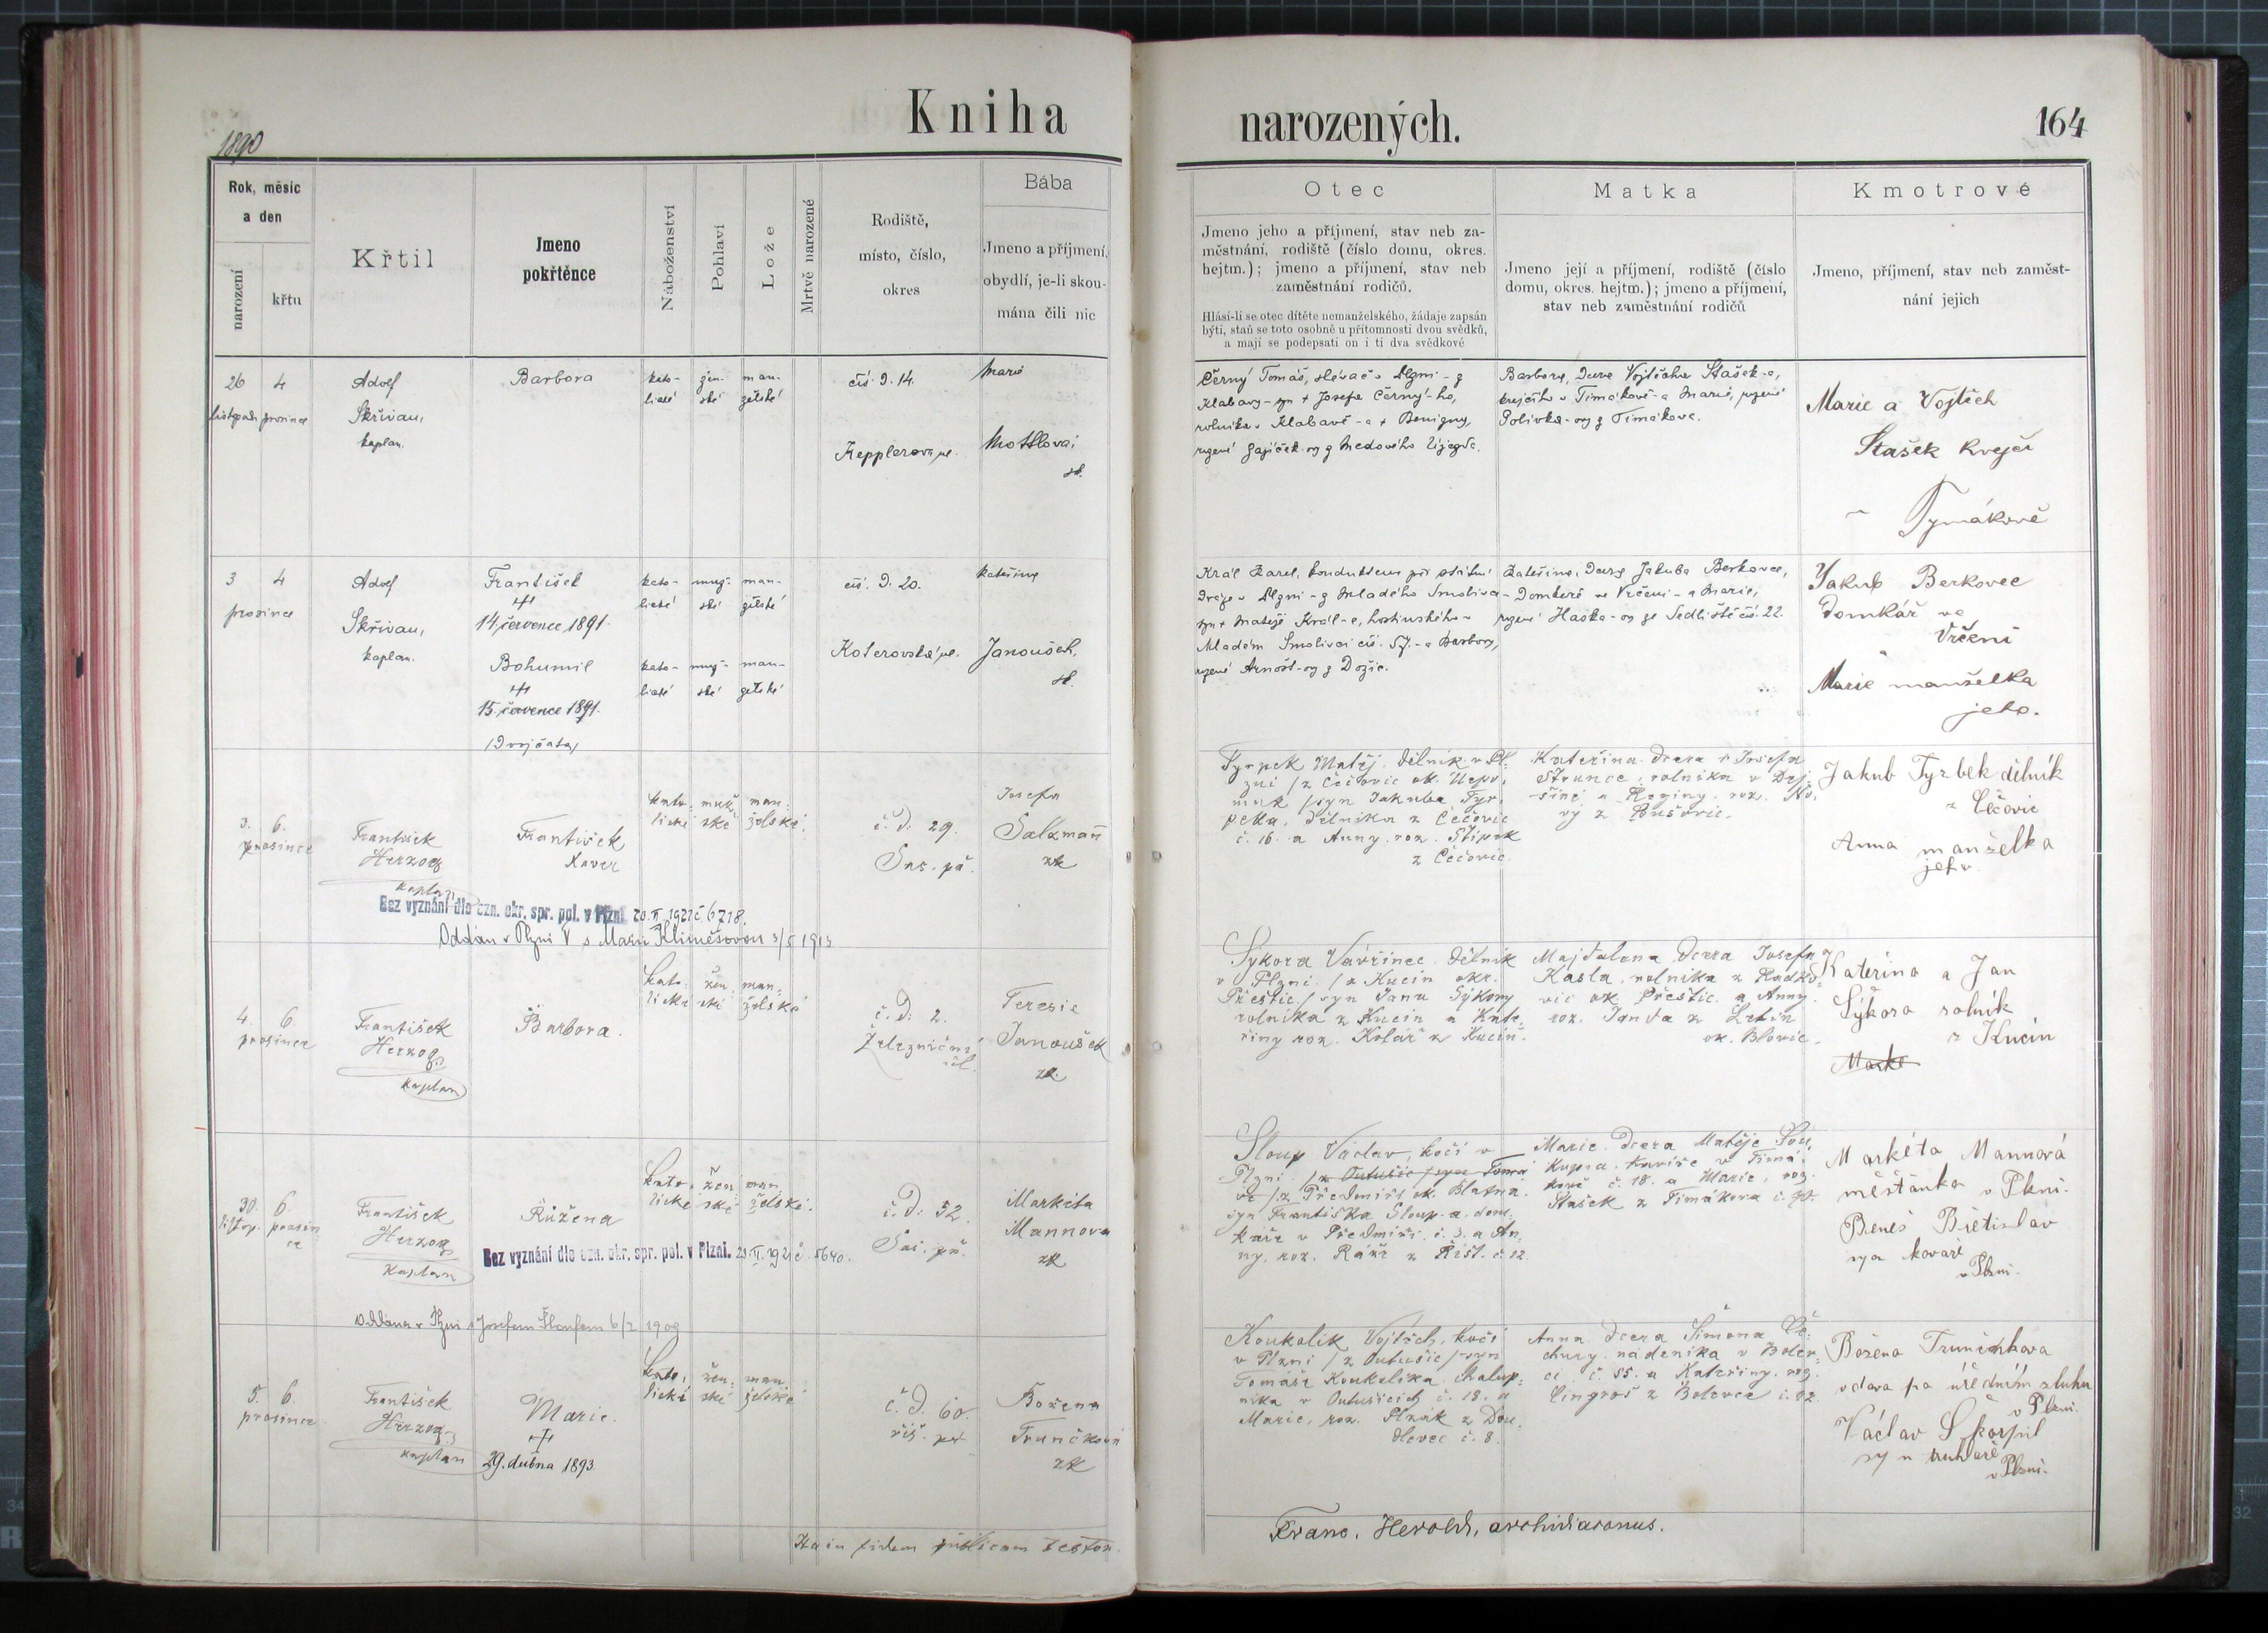 Kniha narozených.
164
1890
Rok, měsíc a den
narození
křtu
Křtil
Jmeno pokřtěnce
Náboženství
Pohlaví
Lože
Mrtvě narozené
Rodiště,
místo, číslo,
okres
Bába
Jmeno a příjmení,
obydlí, je-li skou-
mána čili nic
Otec
Jmeno jeho a příjmení, stav neb za-
městnání, rodiště (číslo domu, okres.
hejtm.); jmeno a příjmení, stav neb
zaměstnání rodičů.
Hlásí-li se otec dítěte nemanželského, žádaje zapsán
býti, staň se toto osobně u přítomnosti dvou svědků,
a mají se podepsati on i ti dva svědkové
Matka
Jmeno její a příjmení, rodiště (číslo
domu, okres. hejtm.); jmeno a příjmení,
stav neb zaměstnání rodičů
Kmotrové
Jmeno, příjmení, stav neb zaměst-
nání jejich
26 4
listopadu prosince
Adolf
Skřivan,
kaplan.
Barbora
kato-
lické
žen-
ské
man-
želské
čís. d. 14.
Kepplerova ul.
Marie
Mottlova,
zk.
Černý Tomáš, slévač v Plzni - z
Klabavy - syn + Josefa Černý-ho,
rolníka v Klabavě - a + Benigny,
rozené Zajíček-ovy z Medového Újezda.
Barbora, dcera Vojtěcha Stašek-a,
krejčího v Timákově - a Marie, rozené
Polívka-ovy z Timákova.
Marie a Vojtěch
Stašek krejčí
v Tymákově
3 4
prosince
Adolf
Skřivan,
kaplan.
František
+
14 července 1891.
Bohumil
+
15. července 1891.
(Dvojčata)
kato-
lické
muž-
ské
man-
želské
kato-
lické
muž-
ské
man-
želské
čís. d. 20.
Koterovská ul.
Kateřina
Janoušek,
zk.
Král Karel, kondukteur při státní
dráze v Plzni - z Mladého Smolivce -
syn + Matěje Král-e, hostinského v
Mladém Smolivci čís. 57. - a Barbory,
rozené Arnošt-ovy z Dožic.
Kateřina, dcera Jakuba Berkovce,
domkáře ve Vrčeni - a Marie,
rozené Haska-ovy ze Sedliště čís. 22.
Jakub Berkovec
domkář ve
Vrčeni
Marie manželka
jeho.
3. 6.
prosince
František
Herzog
kaplan
František
Xaver
kato-
lické
muž-
ské
man-
želské.
č. d. 29.
Sas. př.
Josefa
Salzmañ
zk
Bez vyznání dle ozn. okr. spr. pol. v Plzni 20.II.1921 č 6718.
Oddán v Plzni V s Marií Klimešovou 3/5 1913
Tyrpek Matěj, dělník v Pl-
zni /z Čečovic ok. Nepo-
muk/ syn Jakuba Tyr-
peka, dělníka z Čečovic
č. 16. a Anny roz. Štípek
z Čečovic.
Kateřina dcera + Josefa
Strunce, rolníka v Dej-
šině a Reginy roz. No-
vý z Bušovic.
Jakub Tyrbek dělník
z Čečovic
Anna manželka
jeho
4. 6.
prosince
František
Herzog
kaplan
Barbora.
kato-
lické
žen-
ské
man-
želské
č. d. 2.
Železniční
ul.
Teresie
Janoušek
zk.
Sýkora Vavřinec, dělník
v Plzni /z Kucín okr.
Přeštic/ syn Jana Sýkory
rolníka z Kucín a Kate-
řiny roz. Kolář z Kucín.
Majdalena dcera Josefa
Kasla, rolníka z Radko-
vic ok. Přeštic a Anny
roz. Janda z Letin
ok. Blovic.
Kateřina a Jan
Sýkora rolník
z Kucín
30. 6.
listop. prosin-
ce
František
Herzog
kaplan
Růžena
kato-
lické
žen-
ské
man-
želské.
č. d. 52.
Sas. př.
Markéta
Mannova
zk
Bez vyznání dle ozn. okr. spr. pol. v Plzni. 23.II.1921 č. 5640.
Oddána v Plzni s Josefem Šloufem 6/2 1909
Sloup Václav, kočí v
Plzni /z Předmíř ok. Blatná.
syn Františka Sloup-a dom-
káře v Předmíři č. 3. a An-
ny, roz. Ráži z Řišt. č. 12.
Marie dcera Matěje Sou-
kupa, kováře v Timá-
kově č. 18. a Marie, roz.
Stašek z Timákova č. 90.
Markéta Mannová
měšťanka v Plzni.
Beneš Břetislav
syn kováře
v Plzni.
5. 6.
prosince
František
Herzog
kaplan
Marie.
+
29. dubna 1893.
kato-
lické
žen-
ské
man-
želské
č. d. 60.
říš. př.
Božena
Trunčková
zk
Koukolík Vojtěch, kočí
v Plzni /z Outušic/ syn
Tomáše Koukolíka, chalup-
níka v Outušicích č. 18. a
Marie, roz. Plzák z Dou-
dlevec č. 8.
Anna dcera Šimona
nádeníka v Bolev-
ci č. 55. a Kateřiny roz.
Cingroš z Bolevce č. 92
Božena Trunčkova
vdova po úředním sluhu
v Plzni.
Václav Škorpil
syn truhláře
v Plzni.
Ita in fidem publicam testor.
Franc. Herold, archidiaconus.